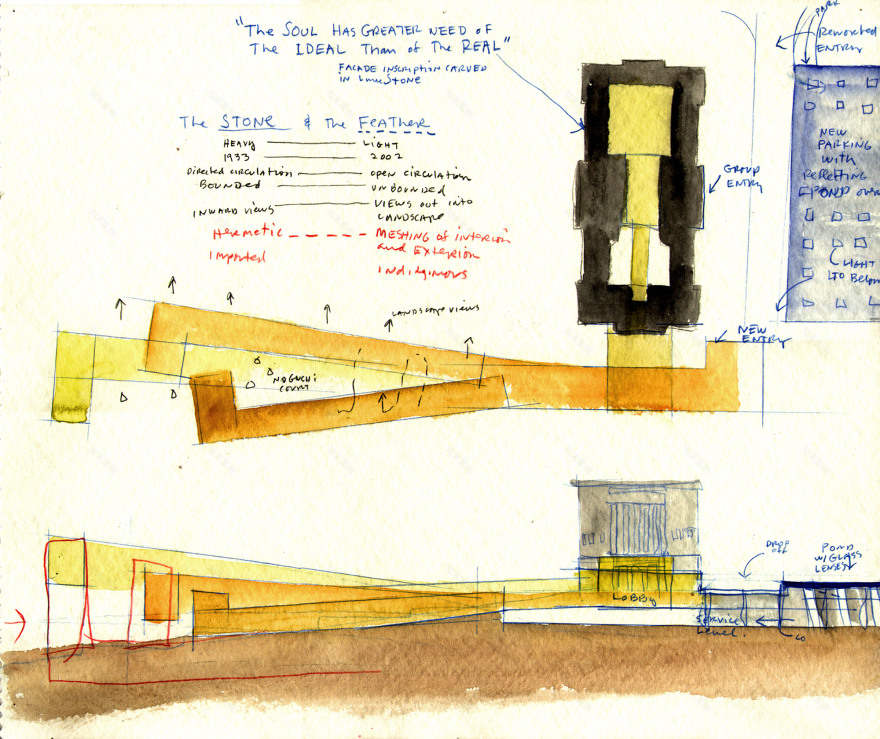 "The SOUL HAS GREATER NEED OF
The IDEAL Than of The REAL"
FACADE INSCRIPTION CARVED
IN LimeStone
The STONE & the FeaTher
HEAVY LIGHT
1933 2002
Directed circulation open circulation
BOUNDED UNBOUNDED
INWARD VIEWS VIEWS OUT INTO
LANDSCAPE
Hermetic MESHING of Interior
and Exterior
Imported
Indiginous
LANDSCAPE VIEWS
NOGUCHI
COURT
GROUP
ENTRY
NEW
ENTRY
PARK
Reworked
ENTRY
NEW
PARKING
with
Reflecting
POND over
LIGHT
TO Below
DROP
OFF
POND
W/GLASS
LENSES
LOBBY
SERVICE
Level.